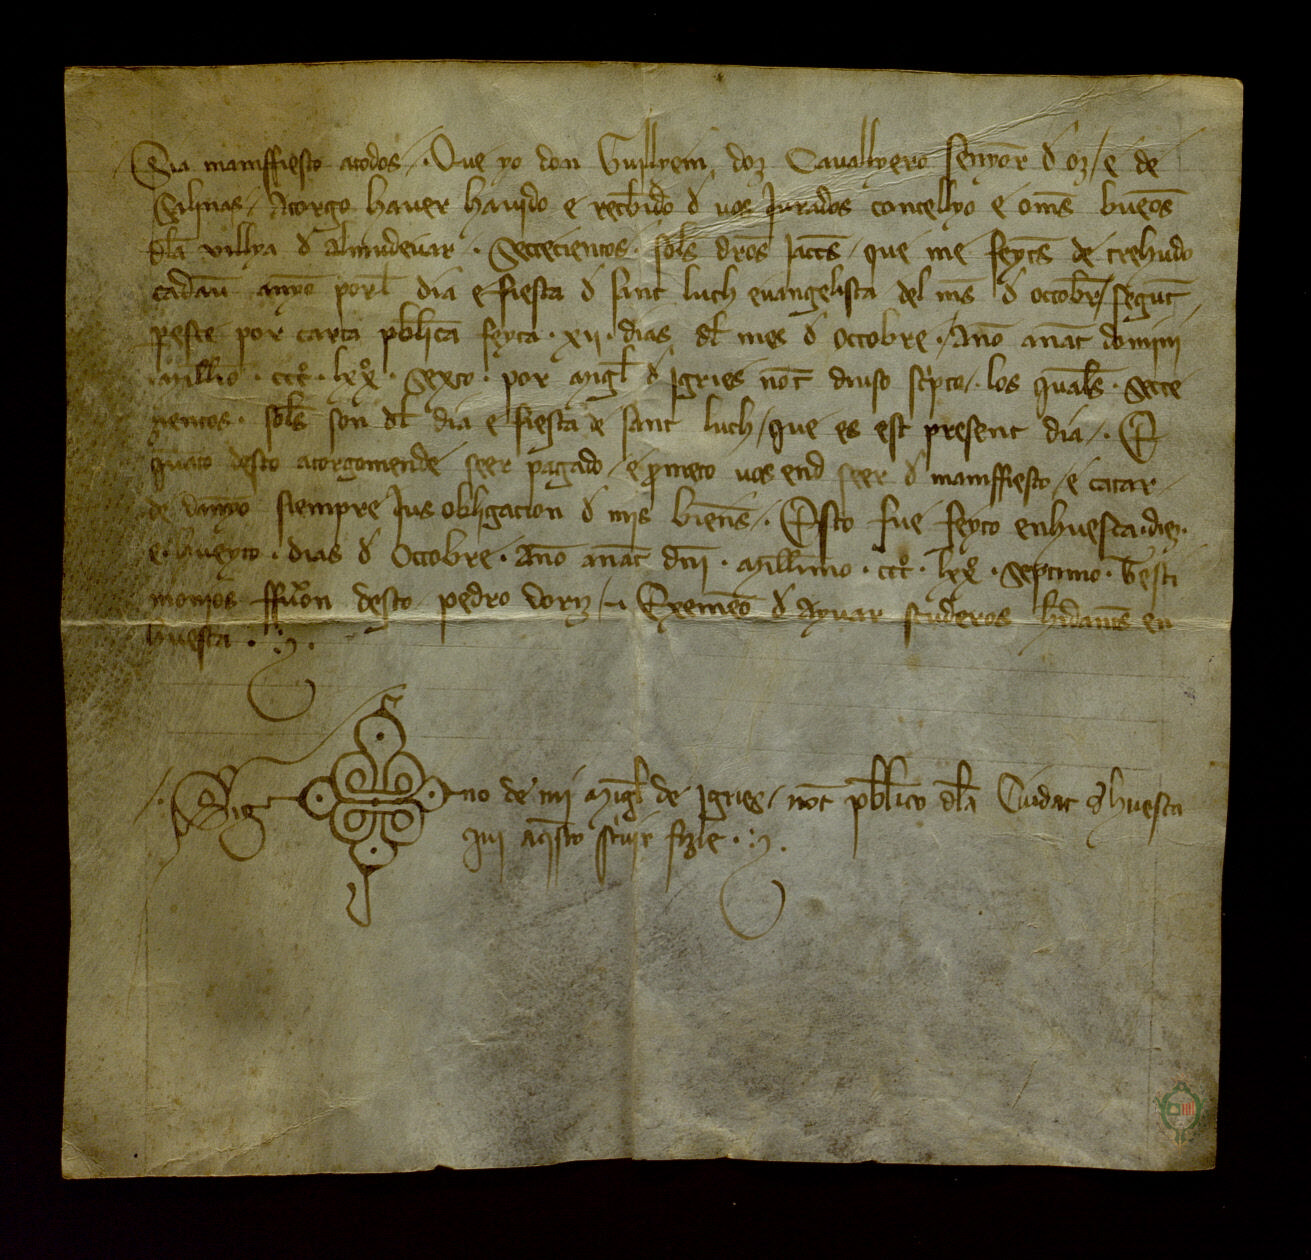 Sia maniffiesto atodos. Que yo don Guillyem doz Cavallyero senyor d oz / e de
Salinas / Atorgo haver havido e recebudo d vos Jurados concellyo e oms buenos
dla villya d Almudevar. Setecientos. sols dros Jaccs / que me feytes de trehudo
cadaun anyo porl dia e fiesta d sant luch evangelista del mes d octobr / segunt
peste por carta publica feyta. xii. dias dl mes d Octobre. Ano anat domini
Millio. ccc. lxx. Sexto. por migl d Igries not diuso scripto. los quals. sete
cientos. sols son dl dia e fiesta de sant luch / que es est present dia. E
quato desto atorgomende seer pagado / e prometo vos end seer d maniffiesto / e catar
de danyo siempre Jus obligacion d mis bienes. Esto fue feyto enhuesca. diez.
e. hueyto. dias d Octobre. Ano anat dni. Millimo. ccc. lxx. Septimo. Testi
monios ffuron desto pedro doriz / Exemeno d Ayvar scuderos habdants en
huesca.
Sig no de mi Migl de Igries / not publico dla Ciudat d huesca
qui aqsto scrivir fizie.